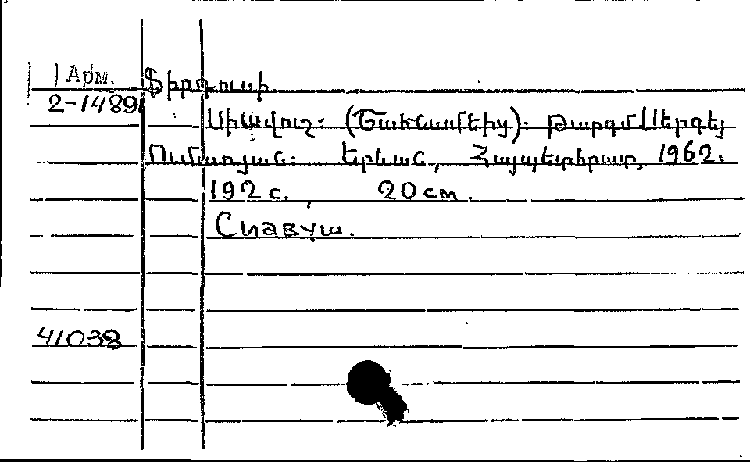 Арм. Ֆիրդուսի.
2-1489 Սիավուշ: (Շահնամեից): թարգմ. Սերգեյ
Ումառյան: Երևան, Հայպետհրատ, 1962.
192 с., 20 см.
Сиавуш.
41038